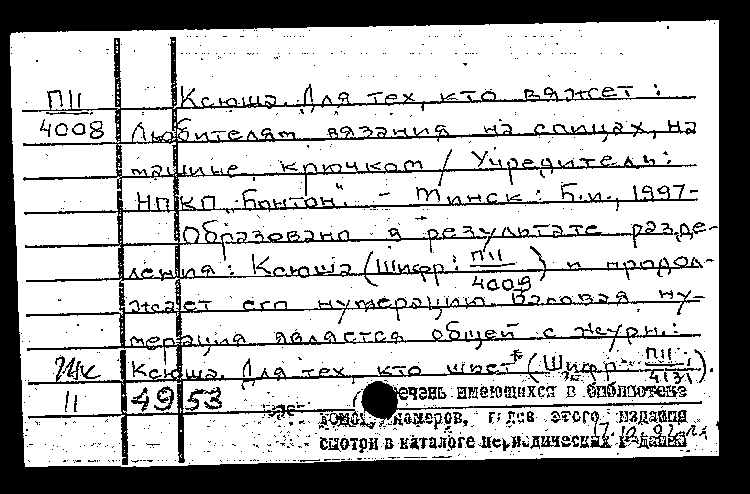 П11 Ксюша. Для тех, кто вяжет :
4008 Любителям вязания на спицах, на
машине, крючком / Учредитель:
НПКП „Бонтон". - Минск : Б.и., 1997-
Образовано в результате разде-
ления : Ксюша (Шифр: П11/4008) и продол-
жает его нумерацию. Валовая ну-
мерация является общей с журн.:
Жк Ксюша. Для тех, кто шьет (Шифр П11/4131).
11 49 53 речень имеющихся в библиотеке
номеров, годов этого издания
смотри в каталоге периодических изданий